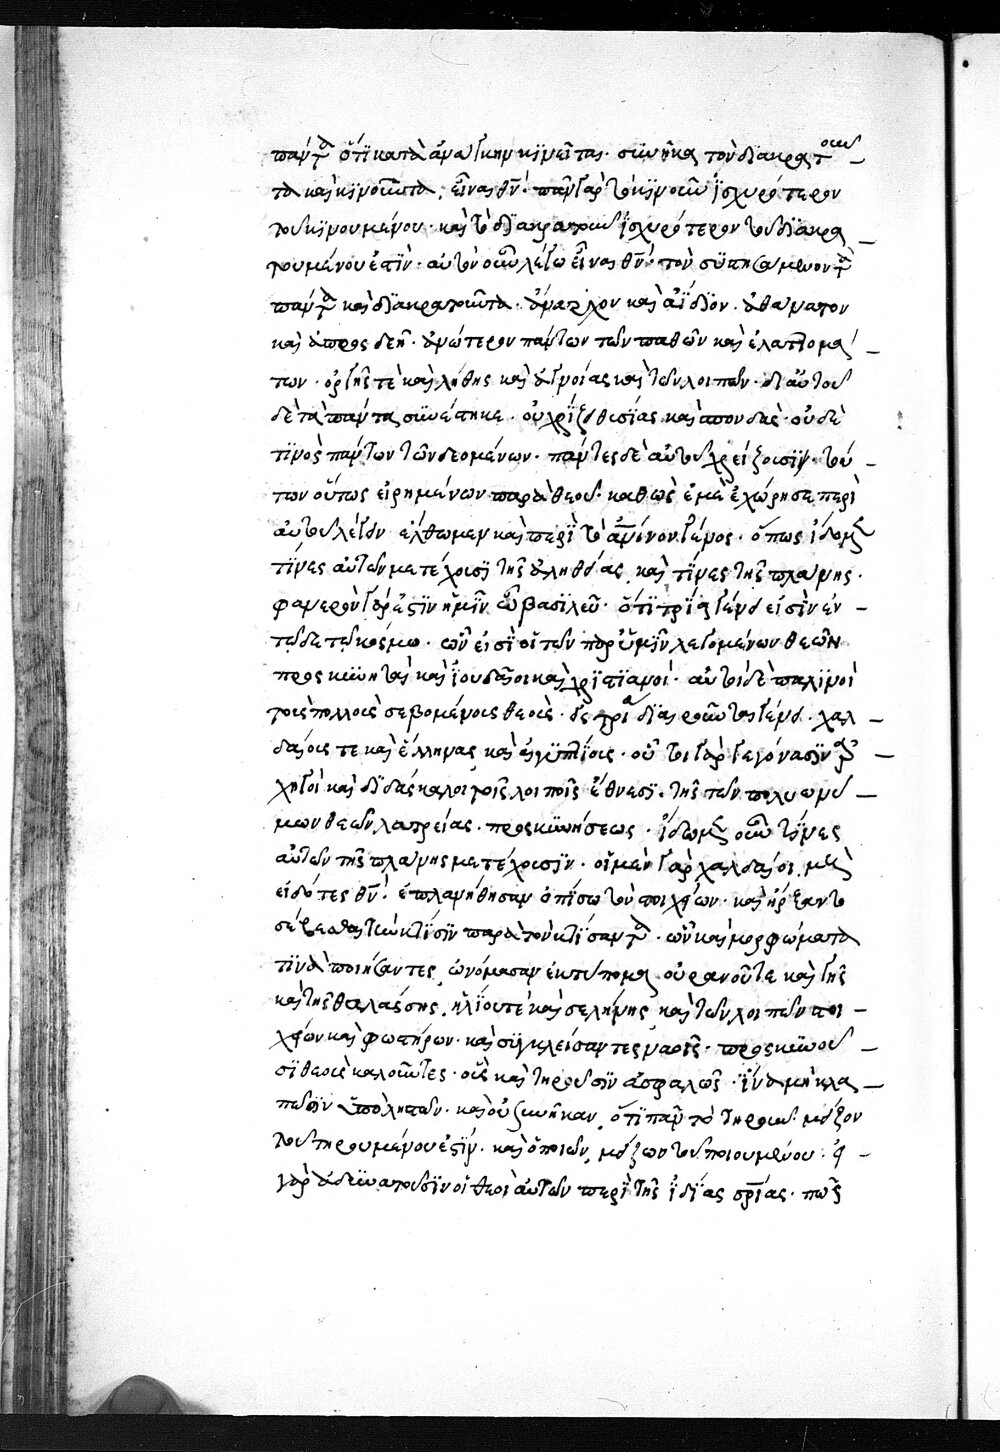 πάντα ὅτι κατὰ ἀνάγκην κινεῖται· συνῆκα τὸν διακρατοῦν
τα καὶ κινοῦντα, εἶναι θν· πᾶν γὰρ τὸ κινοῦν ἰσχυρότερον
τοῦ κινουμένου· καὶ τὸ διακρατοῦν ἰσχυρότερον τοῦ διακρα
τουμένου ἐστίν· αὐτὸν οὖν λέγω εἶναι θν· τὸν συστησάμενον τὰ
πάντα καὶ διακρατοῦντα· ἄναρχον καὶ ἀΐδιον· ἀθάνατον
καὶ ἀπροςδεῆ· ἀνώτερον πάντων τῶν παθῶν καὶ ἐλαττωμά
των· ὀργῆς τὲ καὶ λήθης καὶ ἀγνοίας καὶ τῶν λοιπῶν· δι αὐτοῦ
δὲ τὰ πάντα συνέστηκε· οὐ χρήζει θυσίας καὶ σπονδὰς· οὐδὲ
τινὸς πάντων τῶν δεομένων· πάντες δὲ αὐτοῦ χρείζουσιν· τού
των οὕτως εἰρημένων παρὰ θεοῦ· καθὼς ἐμὲ ἐχώρησε περὶ
αὐτοῦ λέγειν· ἔλθωμεν καὶ περὶ τὸ ἀνινον γένος· ὅπως ἴδομεν
τίνες αὐτῶν μετέχουσι τῆς ἀληθείας, καὶ τίνες τῆς πλάνης·
φανερὸν γάρ ἐστιν ἡμῖν ὦ βασιλεῦ· ὅτι τρία γένη εἰσὶν ἐν
τῶδε τῶ κόσμω· ὧν εἰσὶ οἱ τῶν παρ ὑμῖν λεγομένων θεῶν
προςκυνηταὶ καὶ ἰουδαῖοι καὶ χριστιανοί· αὐτοὶ δὲ πάλιν οἱ
τοὺς πολλοὺς σεβομένους θεοὺς· εἰς τρία διαιροῦνται γένη· χαλ
δαίους τε καὶ ἕλληνας καὶ αἰγυπτίους· οὗτοι γὰρ γεγόνασιν ἀρ
χηγοὶ καὶ διδάσκαλοι τοῖς λοιποῖς ἔθνεσι· τῆς τῶν πολυωνύ
μων θεῶν λατρείας· προςκυνήσεως· ἴδωμεν οὖν τίνες
αὐτῶν τῆς πλάνης μετέχουσιν· οἱ μὲν γὰρ χαλδαῖοι, μὴ
εἰδότες θν· ἐπλανήθησαν ὀπίσω τῶν στοιχείων· καὶ ἤρξαντο
σέβεσθαι τὴν κτίσιν παρὰ τὸν κτίσαντα· ὧν καὶ μορφώματα
τινὰ ποιήσαντες, ὠνόμασαν ἐκτύπομα, οὐρανοῦ τε καὶ γῆς
καὶ τῆς θαλάσσης, ἡλίου τὲ καὶ σελήνης, καὶ τῶν λοιπῶν στοι
χείων καὶ φωστήρων· καὶ συγκλείσαντες ναοῖς· προςκυνοῦ
σι θεοὺς καλοῦντες· οὓς καὶ τηροῦσιν ἀσφαλῶς· ἵνα μὴ κλα
πῶσιν ὑπὸ ληστῶν· καὶ οὐ συνῆκαν, ὅτι πᾶν τὸ τηροῦν· μεῖζον
τοῦ τηρουμένου ἐστίν· καὶ ὁ ποιῶν, μείζων τοῦ ποιουμένου· εἰ
γὰρ ἀδυνατοῦσιν οἱ θεοὶ αὐτῶν περὶ τῆς ἰδίας σριας· πῶς